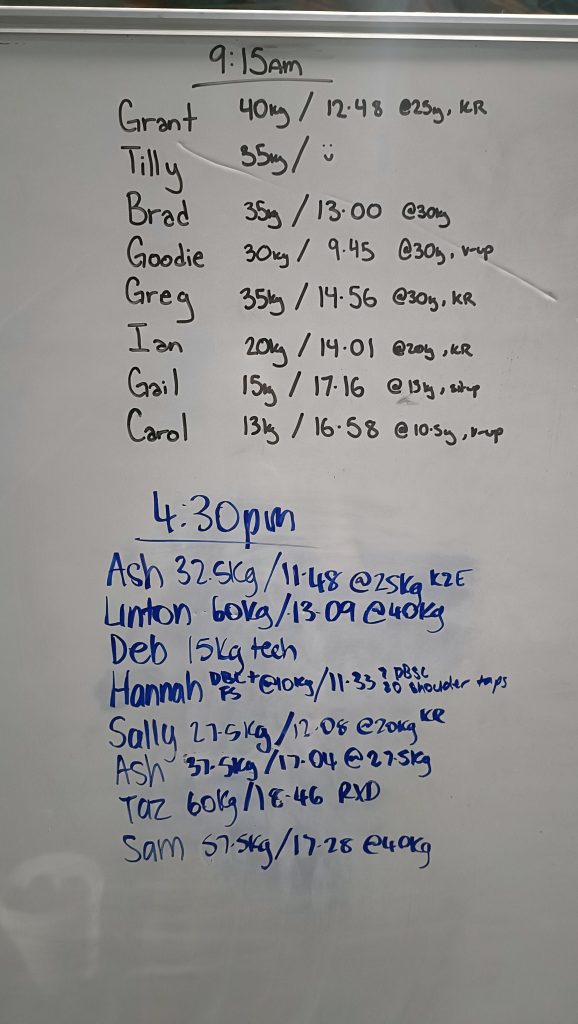 9:15AM
Grant 40kg / 12.48 @25kg, KR
Tilly 35kg /
Brad 35kg / 13.00 @30kg
Goodie 30kg / 9.45 @30kg, v-up
Greg 35kg / 14.56 @30kg, KR
Ian 20kg / 14.01 @20kg, KR
Gail 15kg / 17.16 @13kg, situp
Carol 13kg / 16.58 @10.5kg, v-up
4:30pm
Ash 32.5kg / 11.48 @25kg K2E
Linton 60kg / 13.09 @40kg
Deb 15kg tech
Hannah DBSC + FS @10kg / 11.33 DBSC 30 shoulder taps
Sally 27.5kg / 12.08 @20kg KR
Ash 37.5kg / 17.04 @27.5kg
Taz 60kg / 18.46 RXD
Sam 57.5kg / 17.28 @40kg